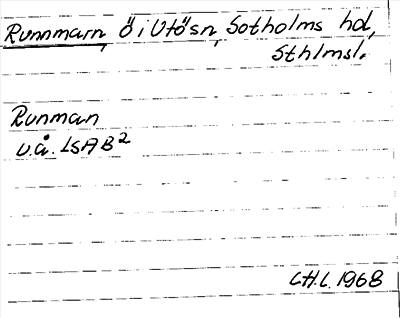 Runnmarn, Ö i Utö sn, Sotholms hd,
Sthlmsl.
Runman
u.å. LSA B2
CH.L. 1968